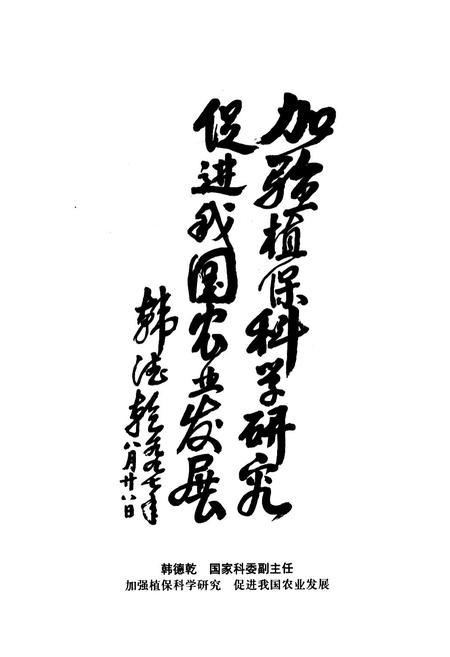 加强植保科学研究
促进我国农业发展
韩德乾
一九九七年
八月廿八日
韩德乾 国家科委副主任
加强植保科学研究 促进我国农业发展